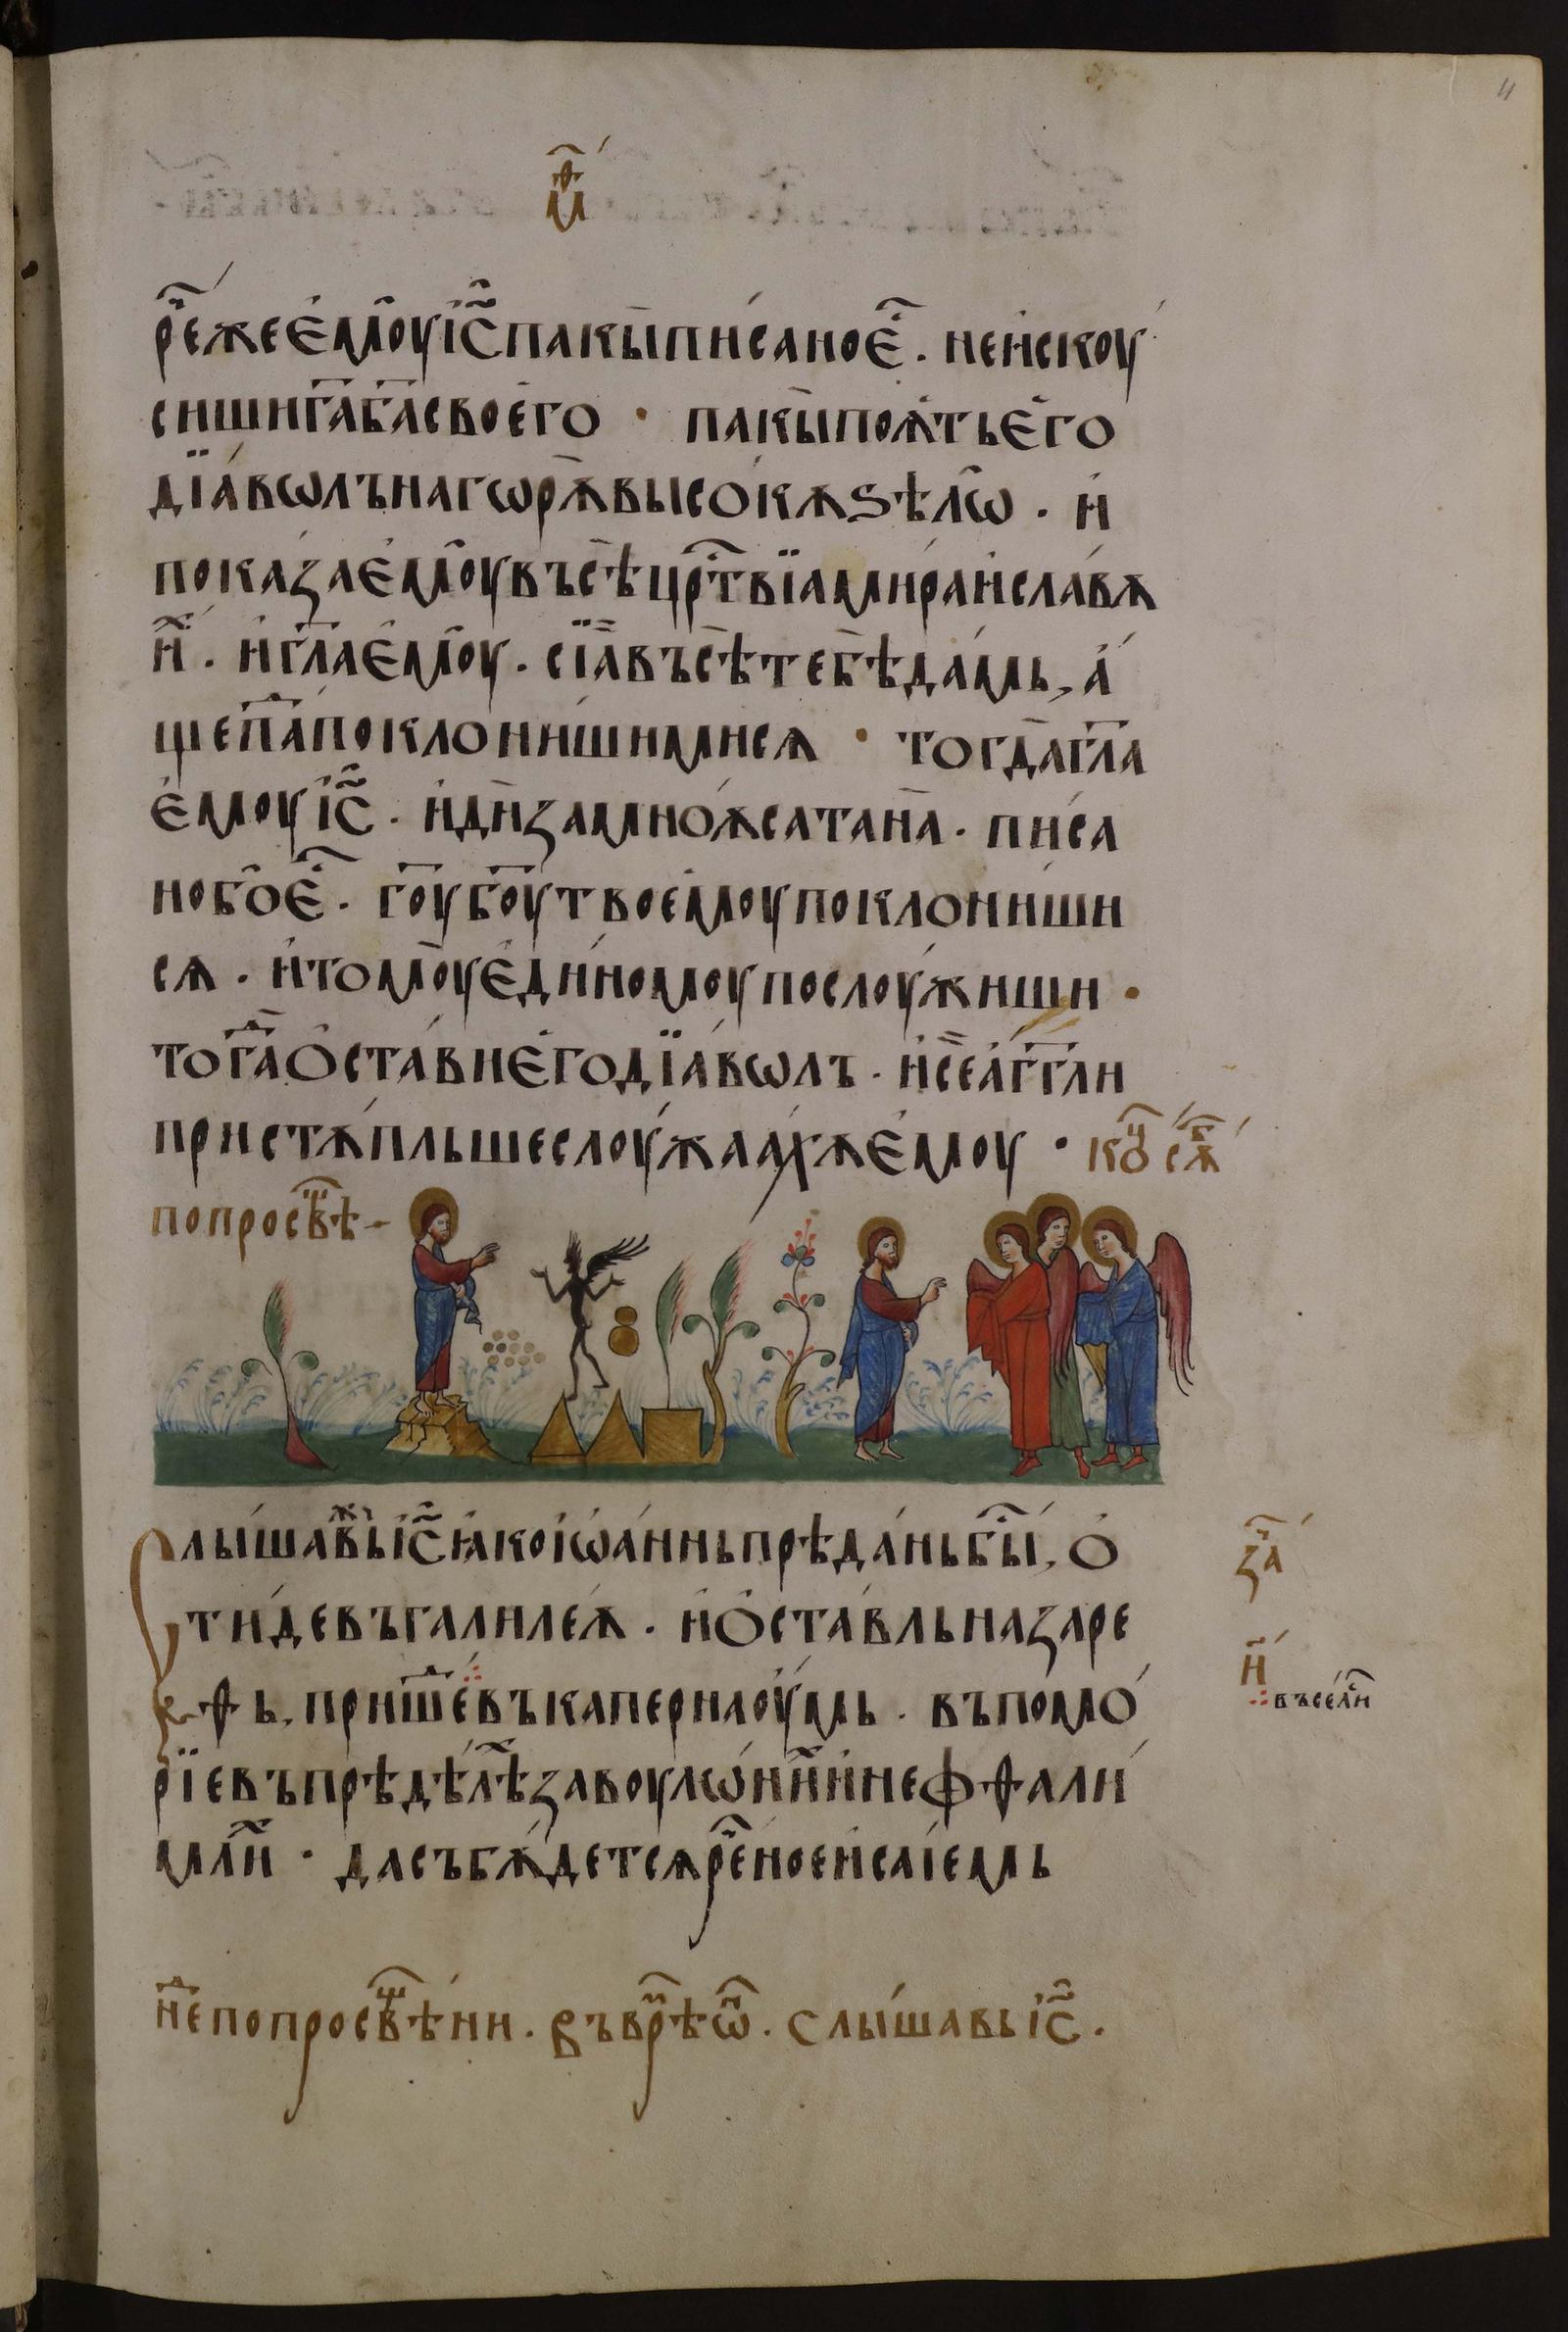 м҃ѳ
рⷱ҇ежеемоуі҃спакыписаное҃. неискоу
сишига҃ба҃своего · пакыпоѧтьего
дїаволънагѡрѫвысокѫѕѣлѡ . и
показаемоувъсѣцрⷭ҇твїамираиславѫ
иⷯ . игл҃аемоу . сїавъсѣтебѣдамь, а
щепⷣапоклонишимисѧ · тогдагл҃а
емоуі҃с . идизамноѫсатана . писа
нобое҃ . го҃убо҃утвоемоупоклониши
сѧ . итомоуединомоупослоужиши ·
тогⷣаоставиегодїаволъ . исеагг҃ли
пристѫпльшеслоужаахѫемоу · коⷰ҇ сѫⷠ
попросвⷳ҇ѣ
лышавⷤьі҃сꙗкоіѡанньпрѣданьбⷭ҇ы, о
тидевъгалилеѫ . иоставльназаре
ѳь, пришеⷣвъкапернаоумь . въпомо
рїевъпрѣдѣлⷯѣзавоулѡниⷯинефѳали
млиⷯ · дасъбѫдетсѧрⷱ҇еноеисаіемь
заⷱ҇
н҃
въселиⷭ҇
неⷣпопросвⷳ҇ѣни . въврⷨ҇ѣѡ҃ . слышавьі҃с .